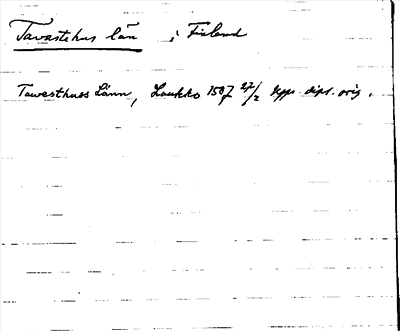 Tavastehus län i Finland
Tawesthuss Länn, Laukko 1587 27/2 dipl. orig.